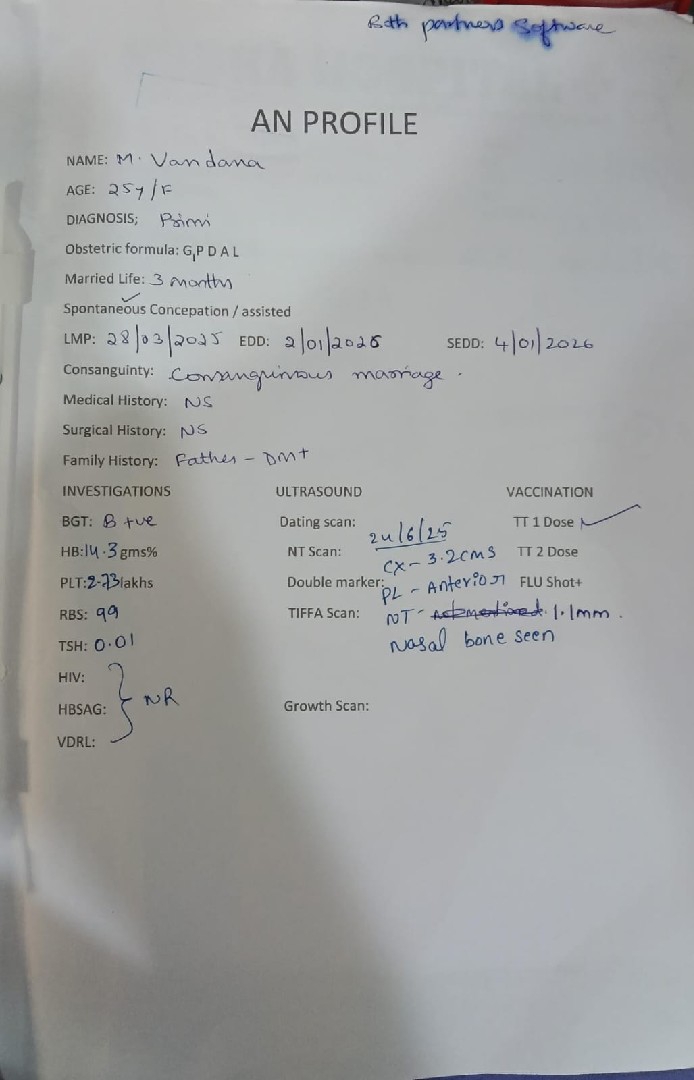 Both partners Software
AN PROFILE
NAME: M. Vandana
AGE: 25y/F
DIAGNOSIS; Primi
Obstetric formula: G₁P D A L
Married Life: 3 months
✓
Spontaneous Concepation / assisted
LMP: 28/03/2025 EDD: 2/01/2026 SEDD: 4/01/2026
Consanguinty: Consanguinous marriage.
Medical History: NS
Surgical History: NS
Family History: Father - DM+
INVESTIGATIONS ULTRASOUND VACCINATION
BGT: B +ve Dating scan: 24/6/25 TT 1 Dose ✓
HB:14.3 gms% NT Scan: CX - 3.2cms TT 2 Dose
PLT:2.73lakhs Double marker: PL - Anterior FLU Shot+
RBS: 99 TIFFA Scan: NT - 1.1mm.
TSH: 0.01 Nasal bone seen
HIV:
HBSAG: } NR Growth Scan:
VDRL: